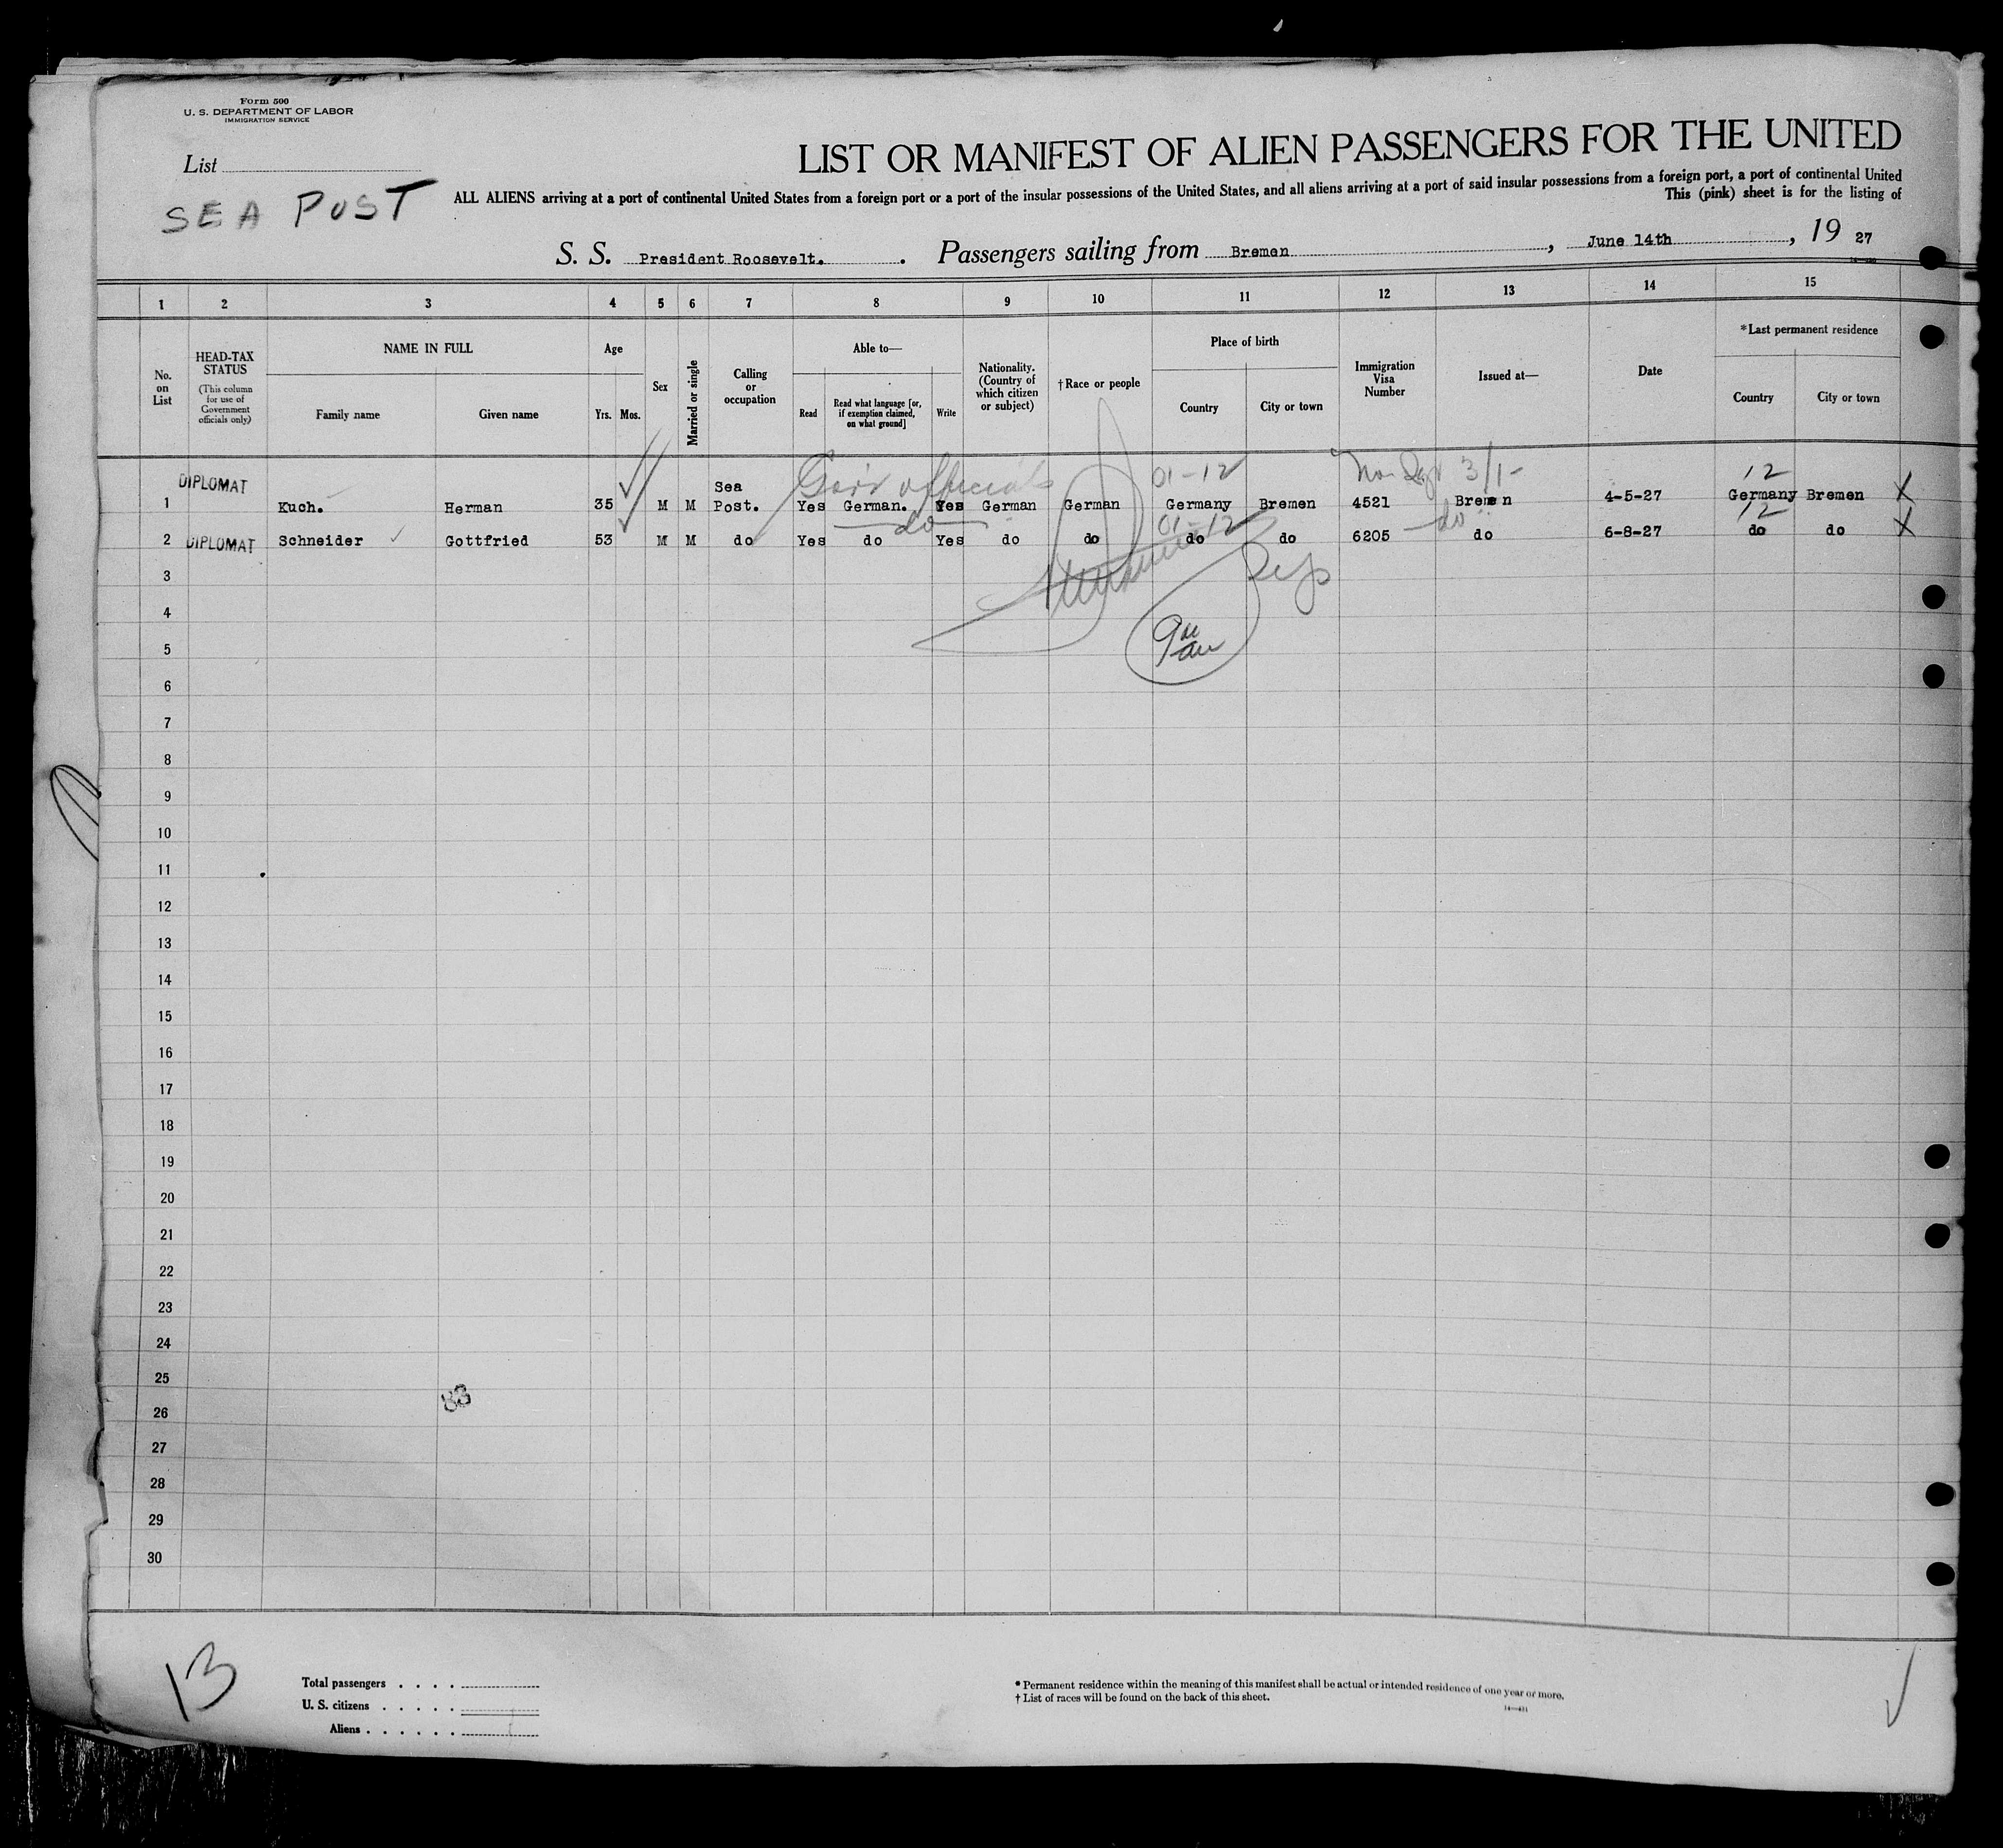 Form 500
U. S. DEPARTMENT OF LABOR
IMMIGRATION SERVICE
List
SEA POST
LIST OR MANIFEST OF ALIEN PASSENGERS FOR THE UNITED
ALL ALIENS arriving at a port of continental United States from a foreign port or a port of the insular possessions of the United States, and all aliens arriving at a port of said insular possessions from a foreign port, a port of continental United
This (pink) sheet is for the listing of
S. S. President Roosevelt. . Passengers sailing from Bremen, June 14th, 19 27
1 2 3 4 5 6 7 8 9 10 11 12 13 14 15
No. on List
HEAD-TAX STATUS
(This column for use of Government officials only)
NAME IN FULL
Family name Given name
Age
Yrs. Mos.
Sex
Married or single
Calling or occupation
Able to—
Read
Read what language [or, if exemption claimed, on what ground]
Write
Nationality. (Country of which citizen or subject)
†Race or people
Place of birth
Country City or town
Immigration Visa Number
Issued at—
Date
*Last permanent residence
Country City or town
Gov't officials 01-12 3/1- 12
1 DIPLOMAT Kuch. Herman 35 M M Sea Post. Yes German. Yes German German Germany Bremen 4521 Bremen 4-5-27 Germany Bremen X
do 01-12 do 12
2 DIPLOMAT Schneider Gottfried 53 M M do Yes do Yes do do do do 6205 do 6-8-27 do do X
3
4
5
6
7
8
9
10
11
12
13
14
15
16
17
18
19
20
21
22
23
24
25
83
26
27
28
29
30
13
Total passengers . . . .
U. S. citizens . . . . .
Aliens . . . . . .
* Permanent residence within the meaning of this manifest shall be actual or intended residence of one year or more.
† List of races will be found on the back of this sheet.